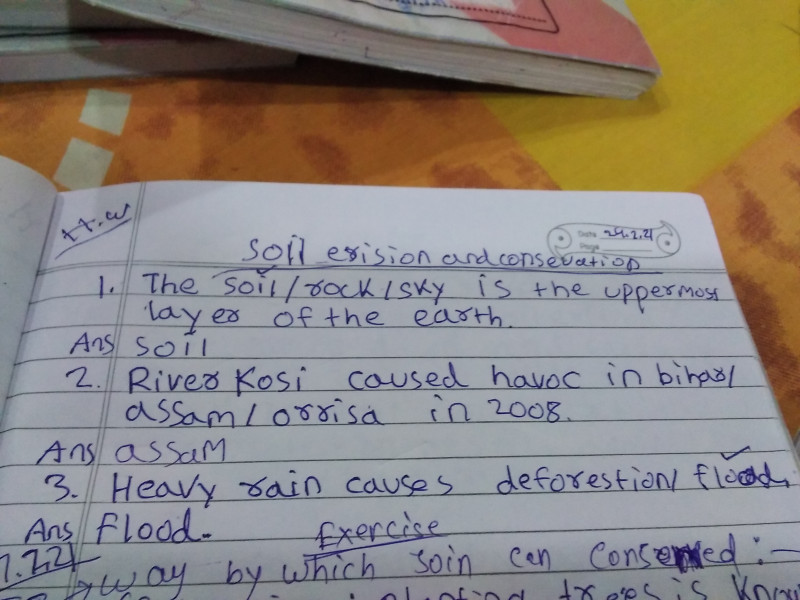 H.W
Date 24.2.21
Page
Soil erision and consevation
1. The soil/rock/sky is the uppermost
layer of the earth.
Ans soil
2. River Kosi caused havoc in bihar/
assam/orrisa in 2008.
Ans assam
3. Heavy rain causes deforestion/flood.
Ans Flood.
Exercise
way by which soin can conserved:-
planting trees is